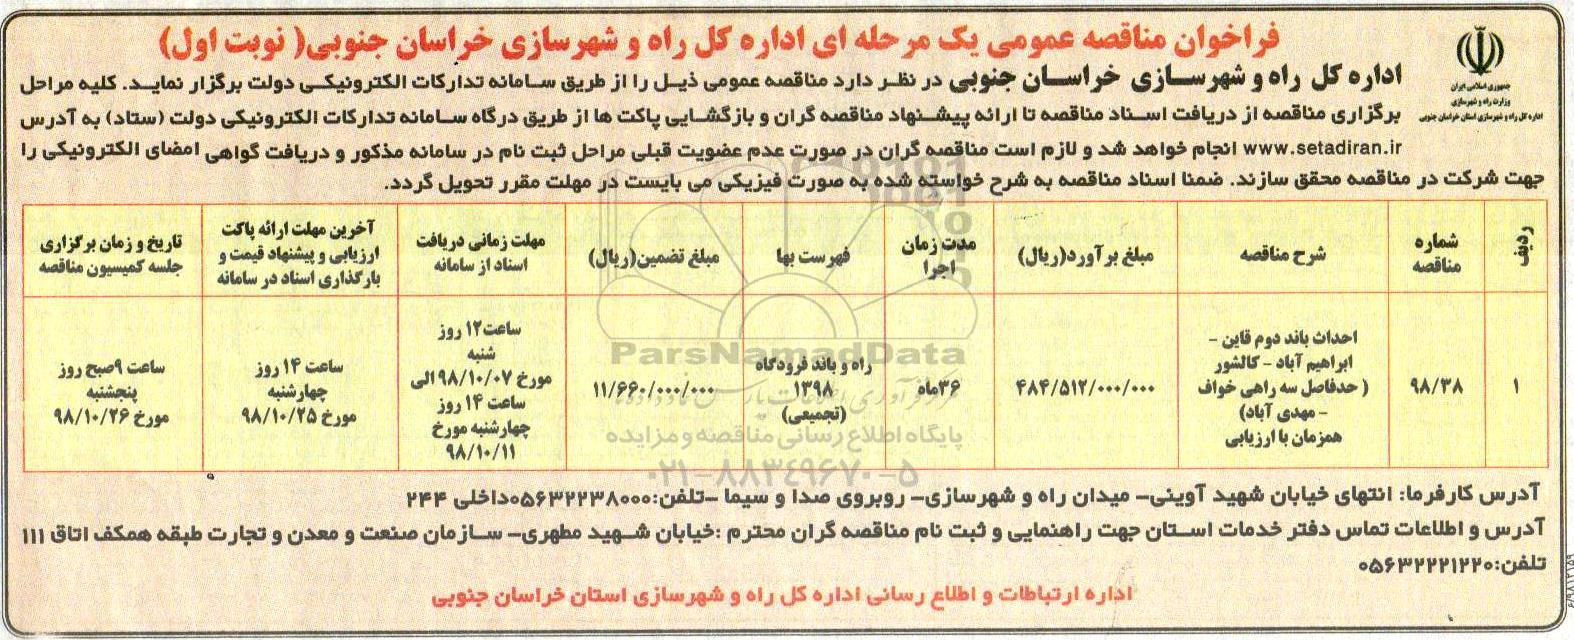 فراخوان مناقصه عمومی یک مرحله ای اداره کل راه و شهرسازی خراسان جنوبی( نوبت اول)
جمهوری اسلامی ایران
وزارت راه و شهرسازی
اداره کل راه و شهرسازی استان خراسان جنوبی
اداره کل راه و شهرسازی خراسان جنوبی در نظر دارد مناقصه عمومی ذیل را از طریق سامانه تدارکات الکترونیکی دولت برگزار نماید. کلیه مراحل
برگزاری مناقصه از دریافت اسناد مناقصه تا ارائه پیشنهاد مناقصه گران و بازگشایی پاکت ها از طریق درگاه سامانه تدارکات الکترونیکی دولت (ستاد) به آدرس
www.setadiran.ir انجام خواهد شد و لازم است مناقصه گران در صورت عدم عضویت قبلی مراحل ثبت نام در سامانه مذکور و دریافت گواهی امضای الکترونیکی را
جهت شرکت در مناقصه محقق سازند. ضمنا اسناد مناقصه به شرح خواسته شده به صورت فیزیکی می بایست در مهلت مقرر تحویل گردد.
ردیف
شماره
مناقصه
شرح مناقصه
مبلغ برآورد(ریال)
مدت زمان
اجرا
فهرست بها
مبلغ تضمین(ریال)
مهلت زمانی دریافت
اسناد از سامانه
آخرین مهلت ارائه پاکت
ارزیابی و پیشنهاد قیمت و
بارگذاری اسناد در سامانه
تاریخ و زمان برگزاری
جلسه کمیسیون مناقصه
۱
۹۸/۳۸
احداث باند دوم قاین -
ابراهیم آباد - کالشور
( حدفاصل سه راهی خواف
- مهدی آباد)
همزمان با ارزیابی
۴۸۴/۵۱۲/۰۰۰/۰۰۰
۳۶ماه
راه و باند فرودگاه
۱۳۹۸
(تجمیعی)
۱۱/۶۶۰/۰۰۰/۰۰۰
ساعت۱۲ روز
شنبه
مورخ ۹۸/۱۰/۰۷ الی
ساعت ۱۴ روز
چهارشنبه مورخ
۹۸/۱۰/۱۱
ساعت ۱۴ روز
چهارشنبه
مورخ ۹۸/۱۰/۲۵
ساعت ۹صبح روز
پنجشنبه
مورخ ۹۸/۱۰/۲۶
ParsNamadData
پایگاه اطلاع رسانی مناقصه و مزایده
۰۲۱-۸۸۳۴۹۶۷۰-۵
آدرس کارفرما: انتهای خیابان شهید آوینی- میدان راه و شهرسازی- روبروی صدا و سیما -تلفن:۰۵۶۳۲۲۳۸۰۰۰داخلی ۲۴۴
آدرس و اطلاعات تماس دفتر خدمات استان جهت راهنمایی و ثبت نام مناقصه گران محترم :خیابان شهید مطهری- سازمان صنعت و معدن و تجارت طبقه همکف اتاق ۱۱۱
تلفن:۰۵۶۳۲۲۲۱۲۲۰
اداره ارتباطات و اطلاع رسانی اداره کل راه و شهرسازی استان خراسان جنوبی